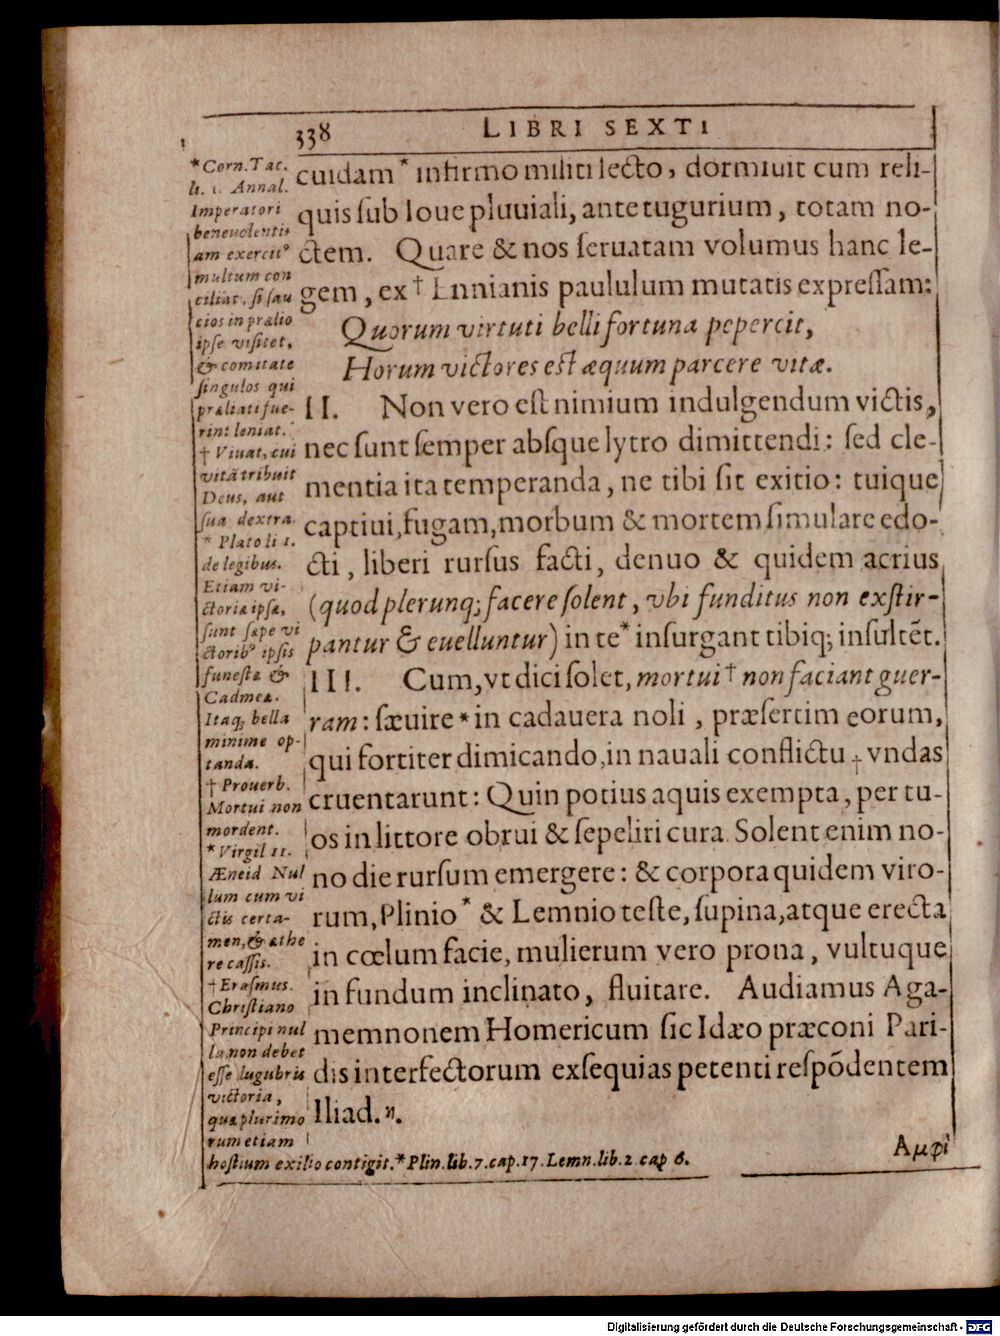 338 LIBRI SEXTI
cuidam * infirmo militi lecto, dormiuit cum reli-
quis ſub Ioue pluuiali, ante tugurium, totam no-
ctem. Quare & nos ſeruatam volumus hanc le-
gem, ex † Ennianis paululum mutatis expreſſam:
Quorum virtuti belli fortuna pepercit,
Horum victores eſt æquum parcere vitæ.
II. Non vero eſt nimium indulgendum victis,
nec ſunt ſemper abſque lytro dimittendi: ſed cle-
mentia ita temperanda, ne tibi ſit exitio: tuique
captiui, fugam, morbum & mortem ſimulare edo-
cti, liberi rurſus facti, denuo & quidem acrius
(quod plerunq; facere ſolent, vbi funditus non exſtir-
pantur & euelluntur) in te * inſurgant tibiq; inſultẽt.
III. Cum, vt dici ſolet, mortui † non faciant guer-
ram: ſæuire * in cadauera noli, præſertim eorum,
qui fortiter dimicando, in nauali conflictu † vndas
cruentarunt: Quin potius aquis exempta, per tu-
os in littore obrui & ſepeliri cura. Solent enim no-
no die rurſum emergere: & corpora quidem viro-
rum, Plinio * & Lemnio teſte, ſupina, atque erecta
in cœlum facie, mulierum vero prona, vultuque
in fundum inclinato, fluitare. Audiamus Aga-
memnonem Homericum ſic Idæo præconi Pari-
dis interfectorum exſequias petenti reſpõdentem
Iliad. η.
Αμφὶ
* Corn. Tac.
li. 1. Annal.
Imperatori
beneuolentis
am exercitꝰ
multum con
ciliat, ſi ſau
cios in prælio
ipſe viſitet,
& comitate
ſingulos qui
præliati fue-
rint leniat.
† Viuat, cui
vitã tribuit
Deus, aut
ſua dextra.
* Plato li 1.
de legibus.
Etiam vi-
ctoria ipſæ,
ſunt ſæpe vi
ctoribꝰ ipſis
funeſtæ &
Cadmeæ.
Itaq; bella
minime op-
tanda.
† Prouerb.
Mortui non
mordent.
* Virgil 11.
Æneid Nul
lum cum vi
ctis certa-
men, & æthe
re caſſis.
† Eraſmus.
Chriſtiano
Principi nul
la non debet
eſſe lugubris
victoria,
quæ plurimo
rum etiam
hoſtium exilio contigit. * Plin. lib. 7. cap. 17. Lemn. lib. 2 cap 6.
Digitalisierung gefördert durch die Deutsche Forschungsgemeinschaft - DFG